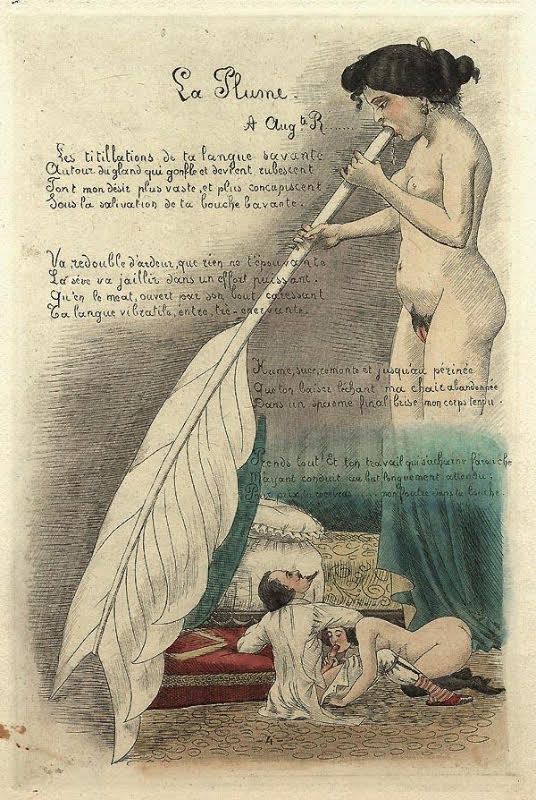 La Plume.
A Aug.te R.....
Les titillations de ta langue savante
Autour du gland qui gonfle et devient rubescent
Font mon désir plus vaste, et plus concupiscent
Sous la salivation de ta bouche bavante.
Va redouble d'ardeur, que rien ne t'épouvante
La sève va jaillir dans un effort puissant.
Qu'en le meat, ouvert par son bout caressant
Ta langue vibratile, entre, très-enervante.
Hume, suce, remonte et jusqu'au périnée
Que ton baiser léchant ma chair abandonnée
Dans un spasme final brise mon corps tendu.
Prends tout! Et ton travail qui s'acharne farouche
M'ayant conduit au but longuement attendu;
Pour prix, tu recevras ..... mon foutre dans ta bouche.
4